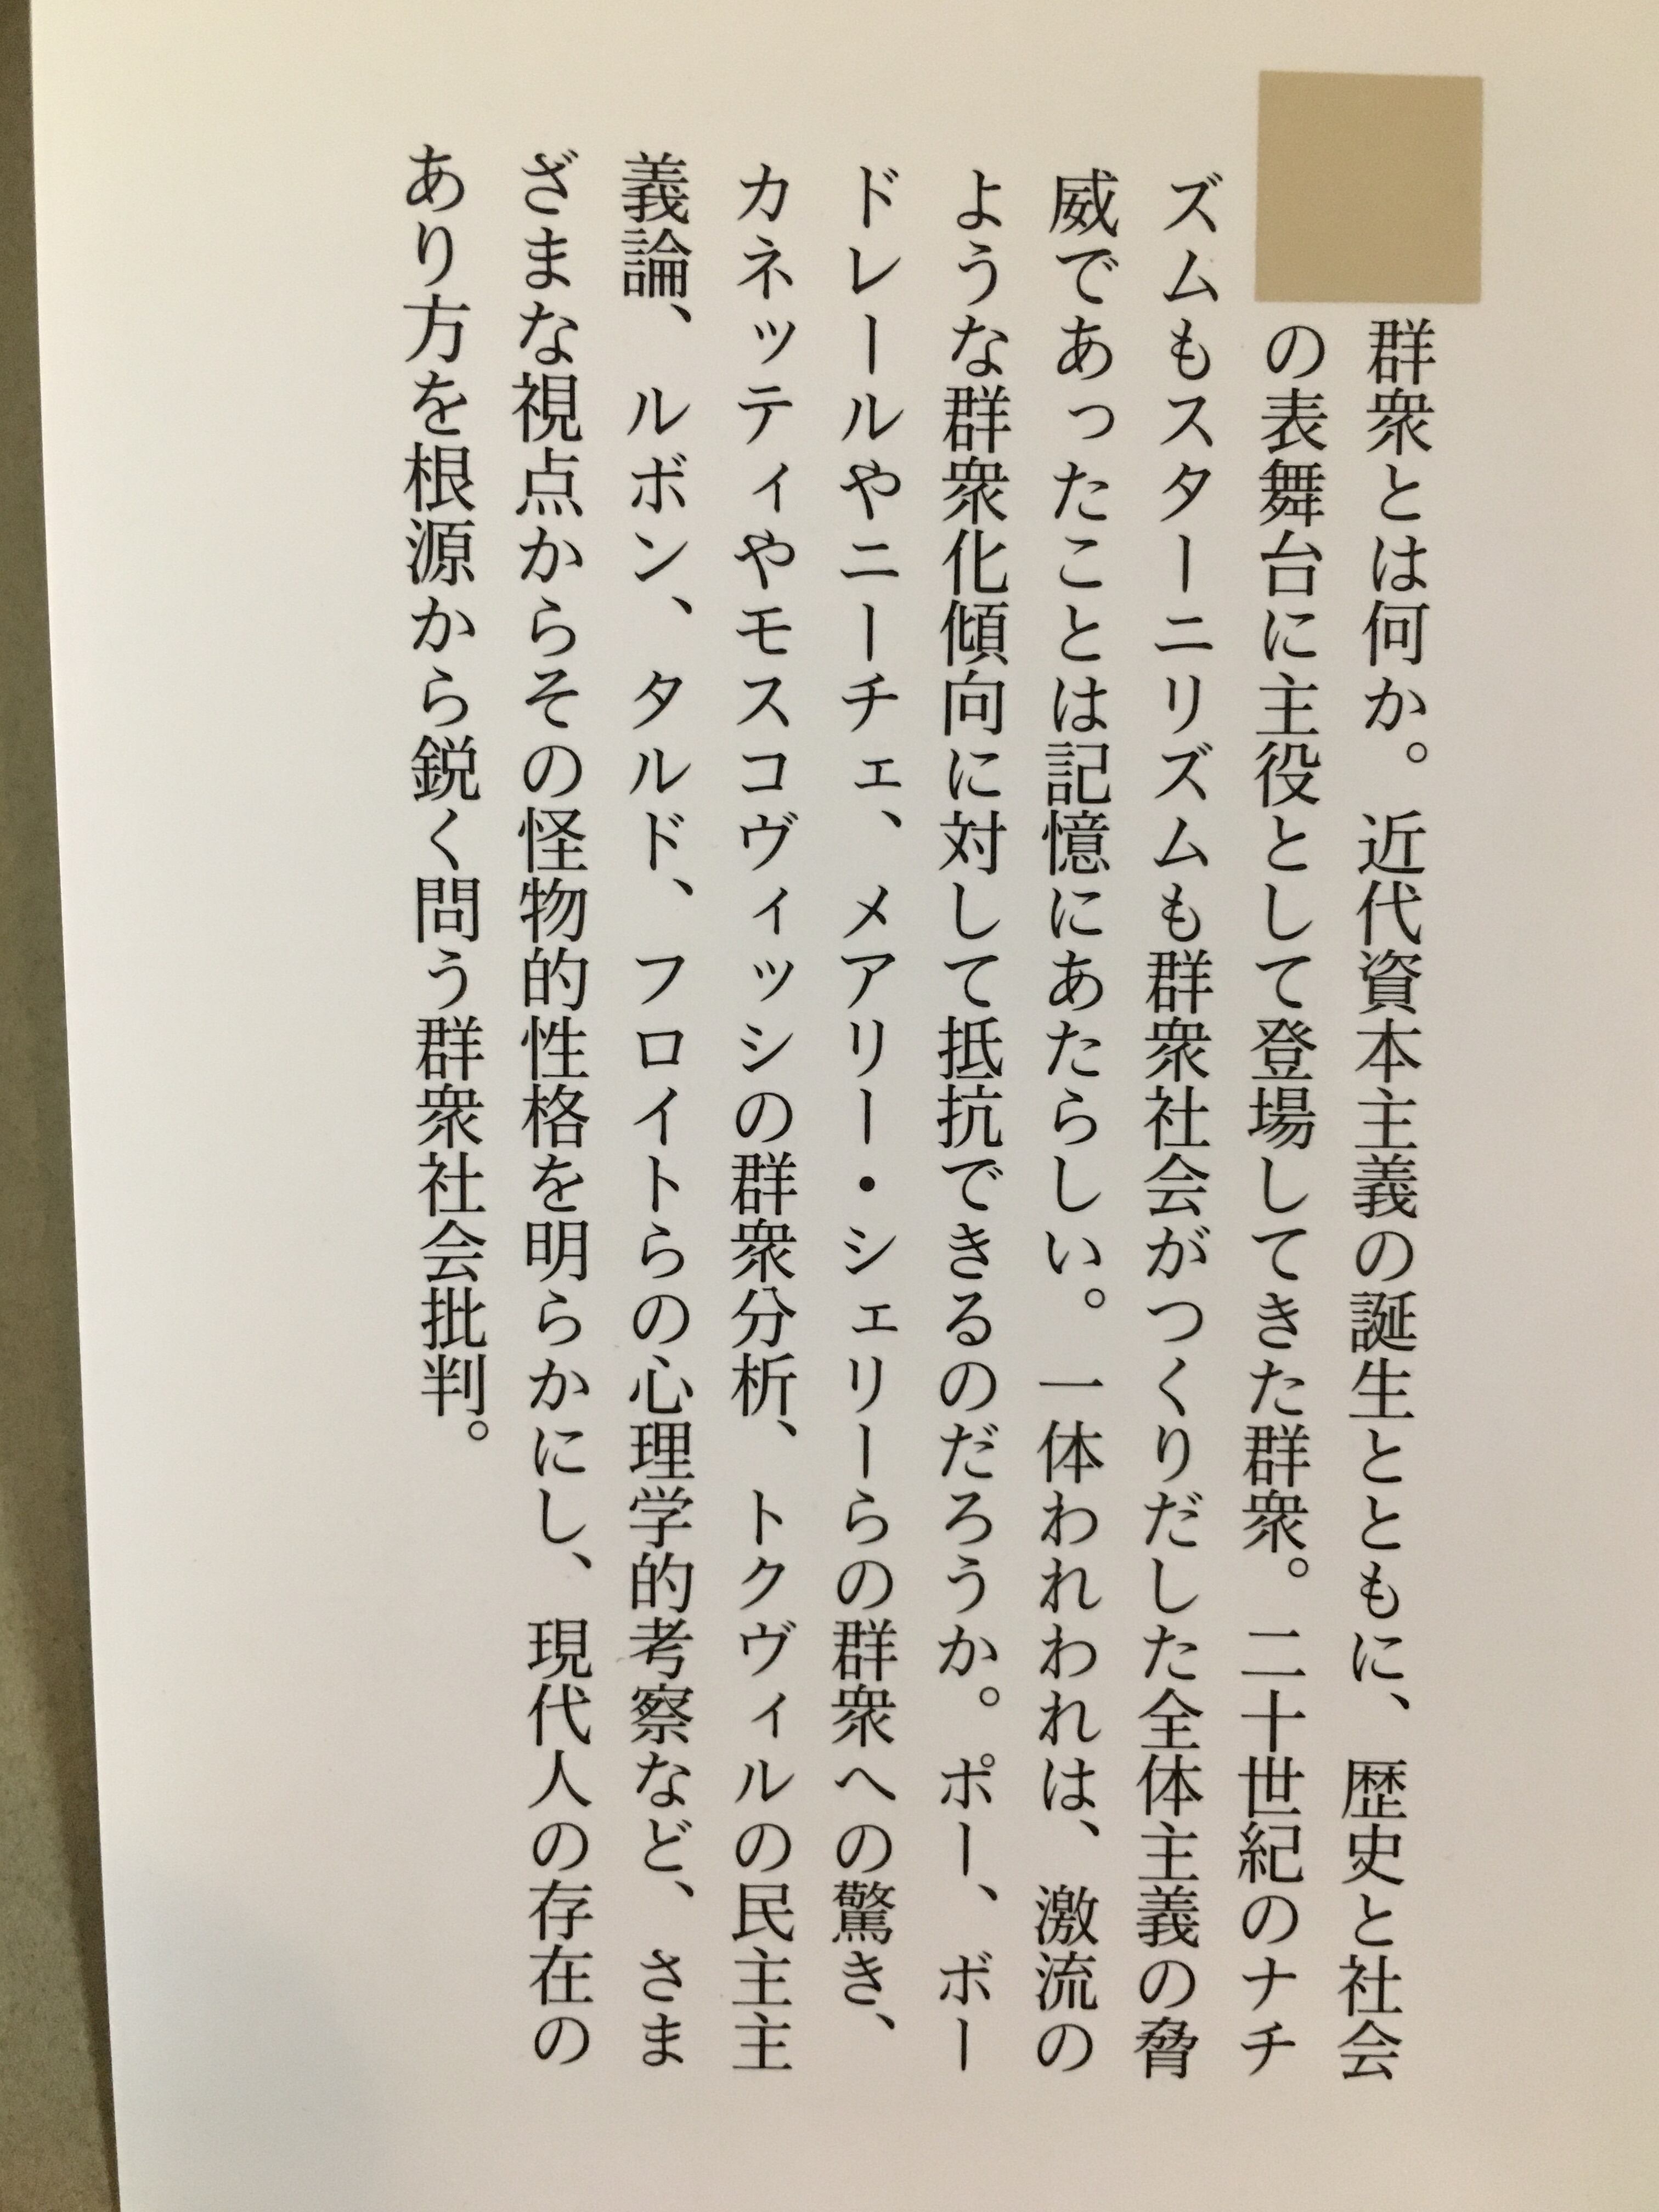 群衆とは何か。近代資本主義の誕生とともに、歴史と社会
の表舞台に主役として登場してきた群衆。二十世紀のナチ
ズムもスターニリズムも群衆社会がつくりだした全体主義の脅
威であったことは記憶にあたらしい。一体われわれは、激流の
ような群衆化傾向に対して抵抗できるのだろうか。ポー、ボー
ドレールやニーチェ、メアリー・シェリーらの群衆への驚き、
カネッティやモスコヴィッシの群衆分析、トクヴィルの民主主
義論、ルボン、タルド、フロイトらの心理学的考察など、さま
ざまな視点からその怪物的性格を明らかにし、現代人の存在の
あり方を根源から鋭く問う群衆社会批判。